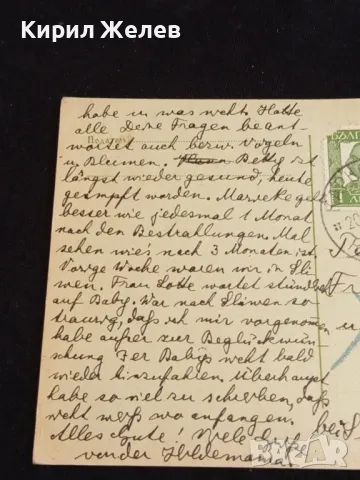 Кирил Желев
habe u. was nicht. Hatte
alle Deine Fragen beant-
wortet auch bezw. Vögeln
u. Blumen. Betty ist
längst wieder gesund, heute
geimpft worden. geht
besser wie jedesmal 1 Monat
nach den Bestrahlungen. Mal
sehen wie's nach 3 Monaten ist.
Vorige Woche waren wir in Sli-
wen. Frau Lotte wartet stündlich
auf Baby. War nach Sliwen so
traurig, daß ich mir vorgenommen
habe außer zur Beglückwün-
schung der Babys nicht bald
wieder hinzufahren. Überhaupt
habe so viel zu schreiben, daß
nicht weiß wo anfangen.
Alles Gute! Viele Grüße
von der
БЪЛГ
1
bazar